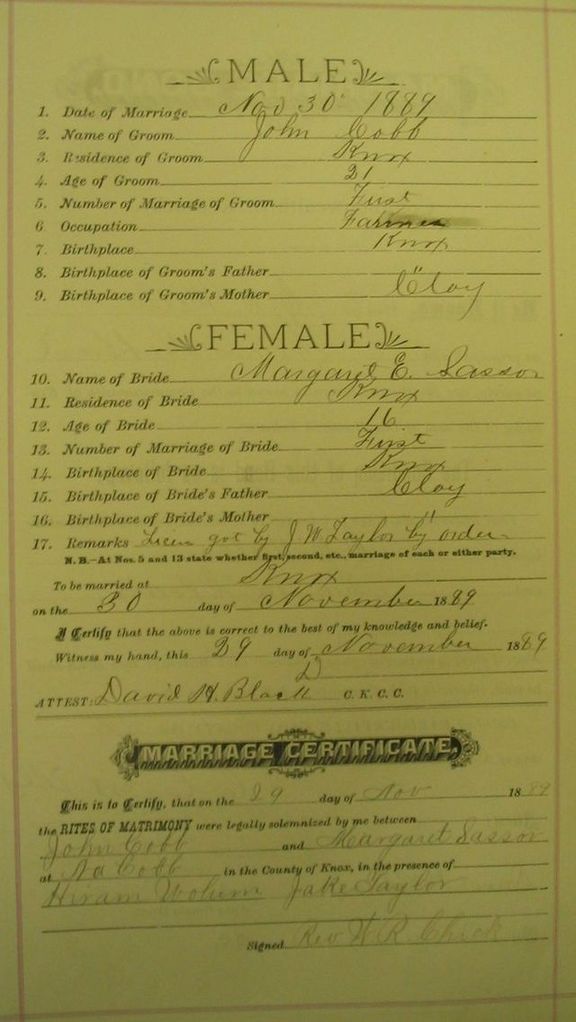 MALE
1. Date of Marriage Nov 30 1889
2. Name of Groom John Cobb
3. Residence of Groom Knox
4. Age of Groom 21
5. Number of Marriage of Groom First
6. Occupation Farmer
7. Birthplace Knox
8. Birthplace of Groom's Father "
9. Birthplace of Groom's Mother Clay
FEMALE
10. Name of Bride Margaret E. Sasser
11. Residence of Bride Knox
12. Age of Bride 16
13. Number of Marriage of Bride First
14. Birthplace of Bride Knox
15. Birthplace of Bride's Father Clay
16. Birthplace of Bride's Mother "
17. Remarks Licen got by J W Taylor by order
N. B.—At Nos. 5 and 13 state whether first, second, etc., marriage of each or either party.
To be married at Knox
on the 30 day of November 1889
I Certify that the above is correct to the best of my knowledge and belief.
Witness my hand, this 29 day of November 1889
ATTEST: David H. Black C. K. C. C.
MARRIAGE CERTIFICATE.
This is to Certify, that on the 29 day of Nov 1889
the RITES OF MATRIMONY were legally solemnized by me between
John Cobb and Margaret Sasser
at Cobb in the County of Knox, in the presence of
Hiram Jake Taylor
Signed Rev W. R. Chick